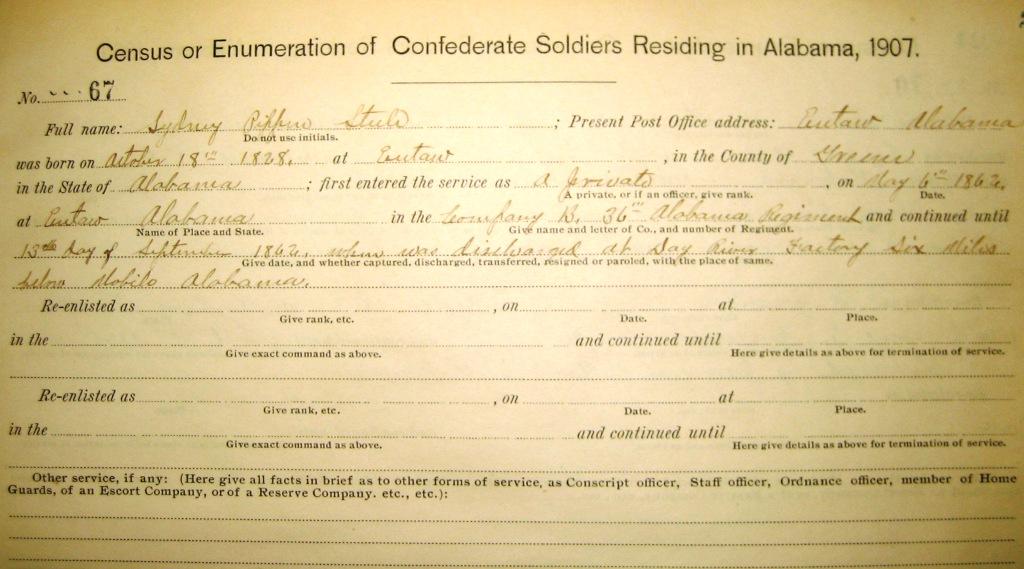 Census or Enumeration of Confederate Soldiers Residing in Alabama, 1907.
No. 67
Full name: Sydney Pippen Steele ; Present Post Office address: Eutaw Alabama
Do not use initials.
was born on October 18th 1828. at Eutaw , in the County of Greene
in the State of Alabama ; first entered the service as A Private , on May 6th 1862,
A private, or if an officer, give rank. Date.
at Eutaw Alabama in the Company B. 36th Alabama Regiment and continued until
Name of Place and State. Give name and letter of Co., and number of Regiment.
13th day of September 1862, when was discharged at Dog River Factory Six Miles
Give date, and whether captured, discharged, transferred, resigned or paroled, with the place of same.
below Mobile Alabama.
Re-enlisted as , on at
Give rank, etc. Date. Place.
in the and continued until
Give exact command as above. Here give details as above for termination of service.
Re-enlisted as , on at
Give rank, etc. Date. Place.
in the and continued until
Give exact command as above. Here give details as above for termination of service.
Other service, if any: (Here give all facts in brief as to other forms of service, as Conscript officer, Staff officer, Ordnance officer, member of Home
Guards, of an Escort Company, or of a Reserve Company. etc., etc.):